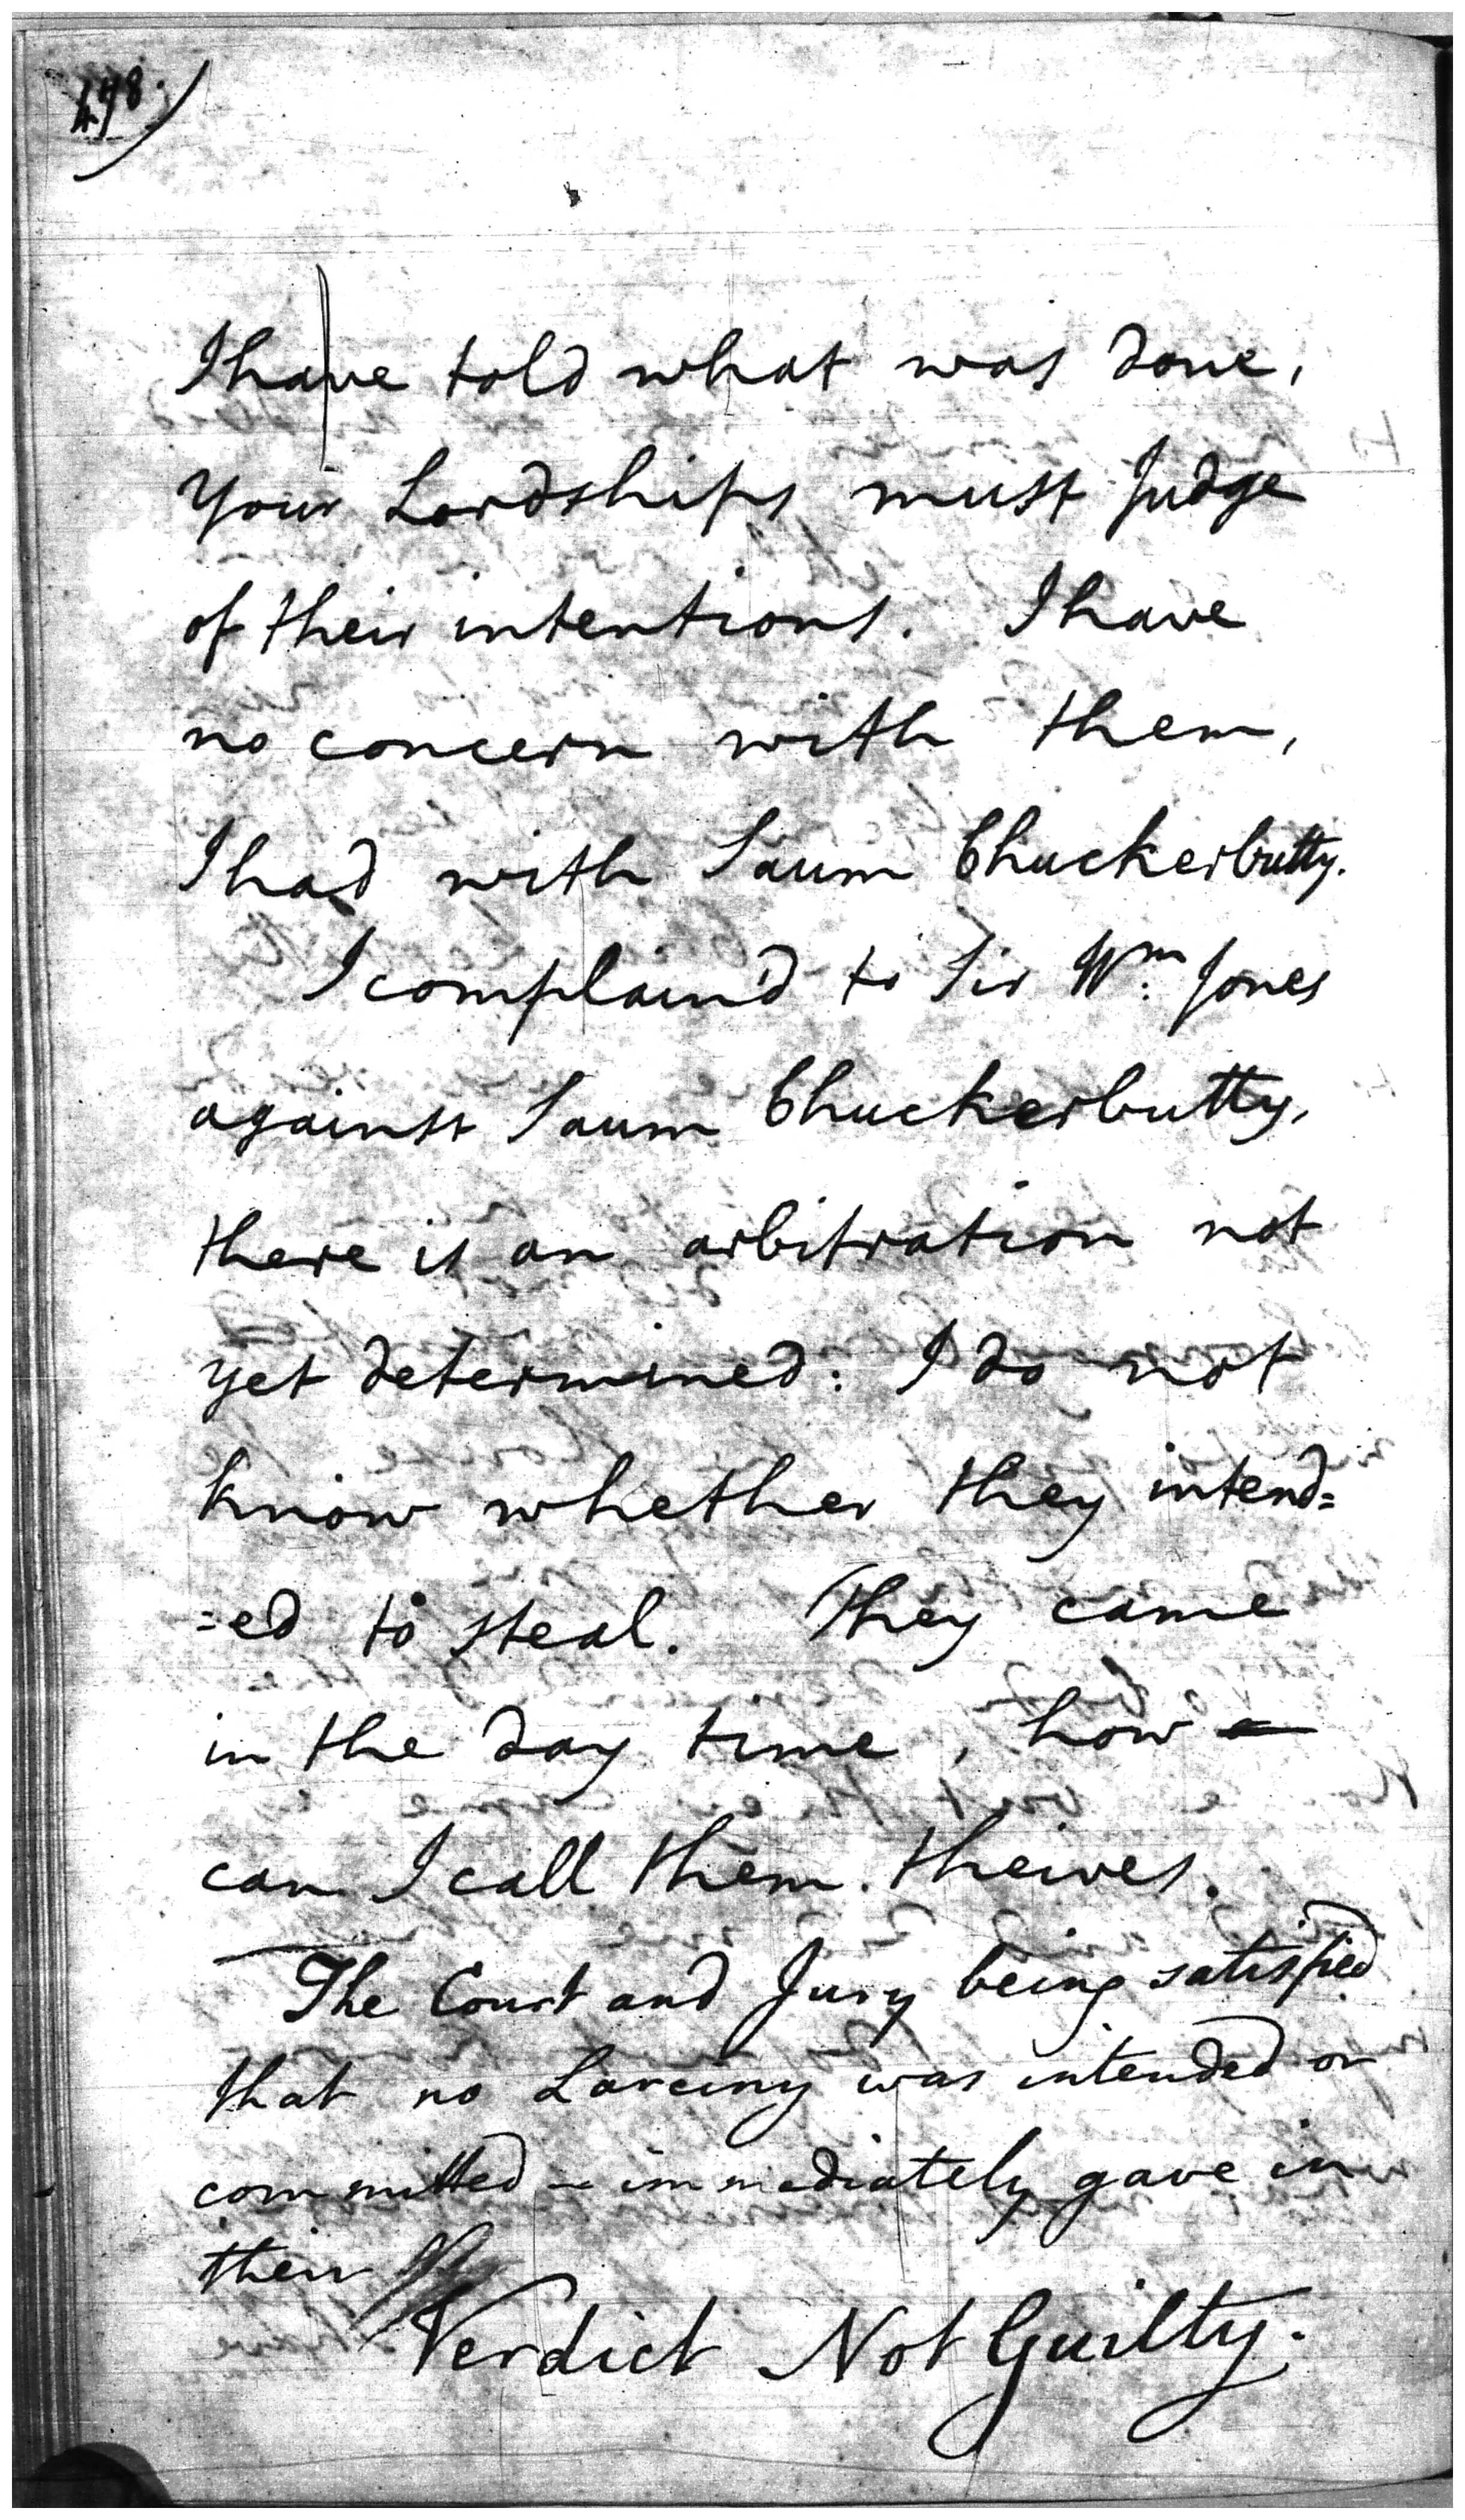 498.)
I have told what was done,
Your Lordships must Judge
of their intentions. I have
no concern with them,
I had with Saum Chuckerbutty.
I complain'd to Sir Wm. Jones
against Saum Chuckerbutty,
there is an arbitration not
yet determined: I do not
know whether they intend=
=ed to steal. They came
in the day time, how
can I call them theives.
The Court and Jury being satisfied
that no Larceny was intended or
committed – immediately gave in
their
Verdict Not Guilty.